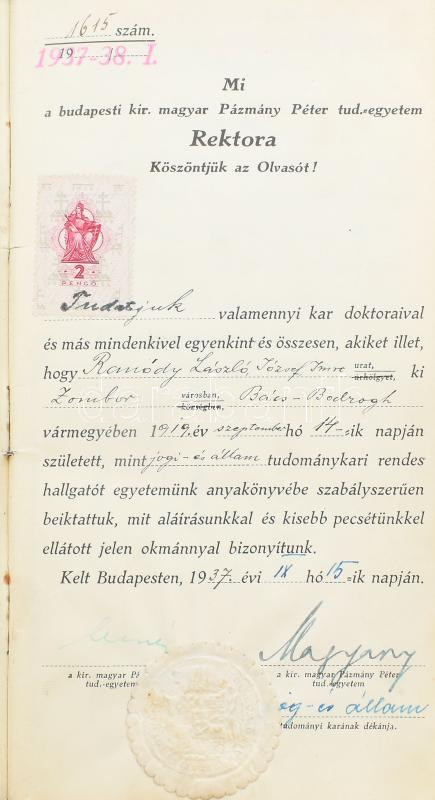 1615 szám.
19
1937-38. I.
Mi
a budapesti kir. magyar Pázmány Péter tud.-egyetem
Rektora
Köszöntjük az Olvasót!
2
PENGŐ
Tudatjuk valamennyi kar doktoraival
és más mindenkivel egyenkint és összesen, akiket illet,
hogy Ranódy László, József Imre urat, úrhölgyet, ki
Zombor városban, községben, Bács-Bodrogh
vármegyében 1919. év szeptember hó 14-ik napján
született, mint jogi- és állam tudománykari rendes
hallgatót egyetemünk anyakönyvébe szabályszerűen
beiktattuk, mit aláírásunkkal és kisebb pecsétünkkel
ellátott jelen okmánnyal bizonyítunk.
Kelt Budapesten, 1937. évi IX hó 15-ik napján.
Magyary
a kir. magyar Pázmány Péter a kir. magyar Pázmány Péter
tud.-egyetem tud.-egyetem
og- és állam
tudományi karának dékánja.